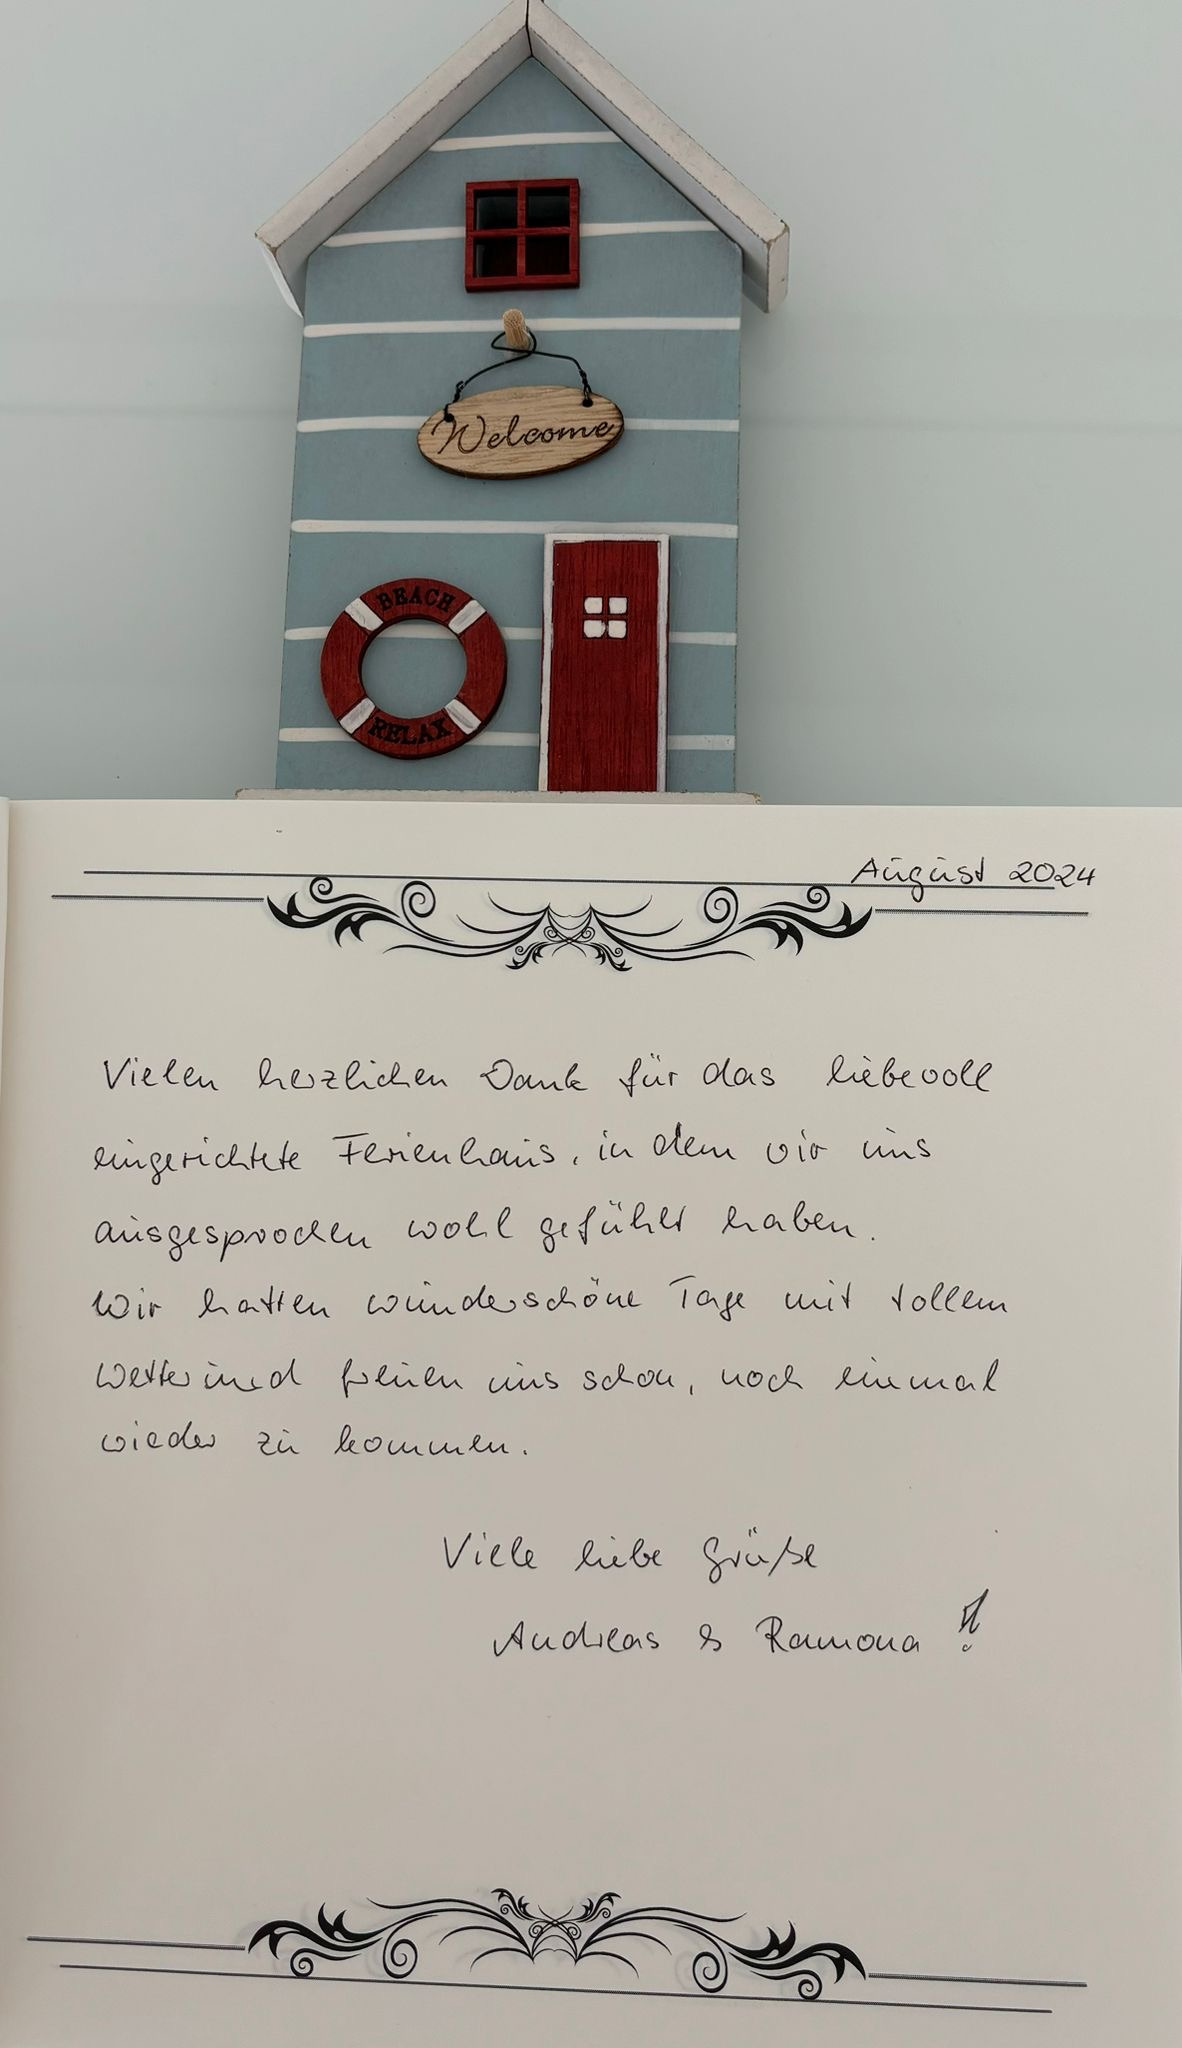 Welcome
BEACH
RELAX
August 2024
Vielen herzlichen Dank für das liebevoll
eingerichtete Ferienhaus, in dem wir uns
ausgesprochen wohl gefühlt haben.
Wir hatten wunderschöne Tage mit tollem
Wetter und freuen uns schon, noch einmal
wieder zu kommen.
Viele liebe Grüße
Andreas & Ramona !